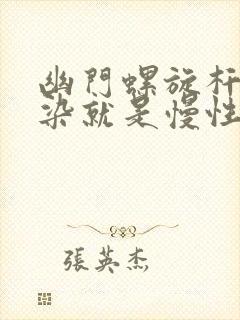 幽門螺旋杆
染就是慢性
張英杰